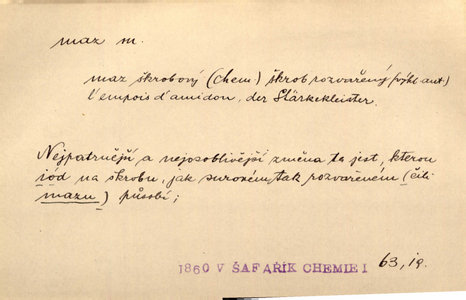 maz m.
maz škrobový (chem.) škrob rozvařený (výkl. aut.)
l'empois d'amidon, der Stärkekleister.
Nejpatrnější a nejosoblivější změna ta jest, kterou
iód na škrobu, jak surovém tak rozvařeném (čili
mazu) působí;
1860 V ŠAFAŘÍK CHEMIE I 63, 19.